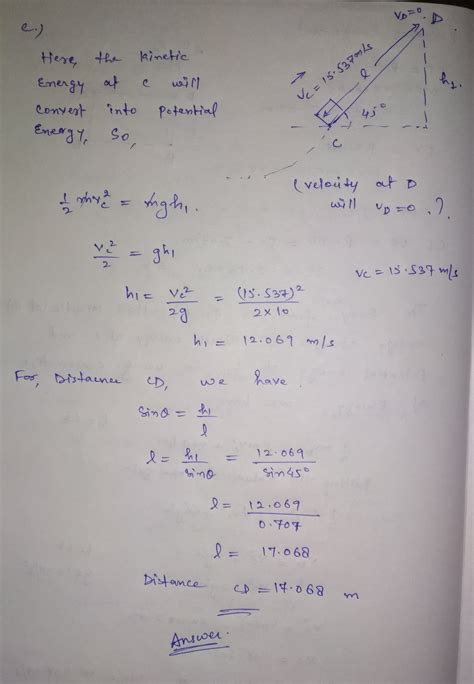 c.)
Here, the kinetic
Energy at C will
convert into potential
Energy, So,
V_D=0 D
V_C = 15.537 m/s
l
h₁
45°
C
(velocity at D
will V_D=0 .)
½ mv_c² = mgh₁.
V_c²/2 = gh₁
V_C = 15.537 m/s
h₁ = V_c²/2g = (15.537)²/2×10
h₁ = 12.069 m/s
For, Distance CD, we have.
Sinθ = h₁/l
l = h₁/Sinθ = 12.069/Sin45°
l = 12.069/0.707
l = 17.068
Distance CD = 17.068 m
Answer.